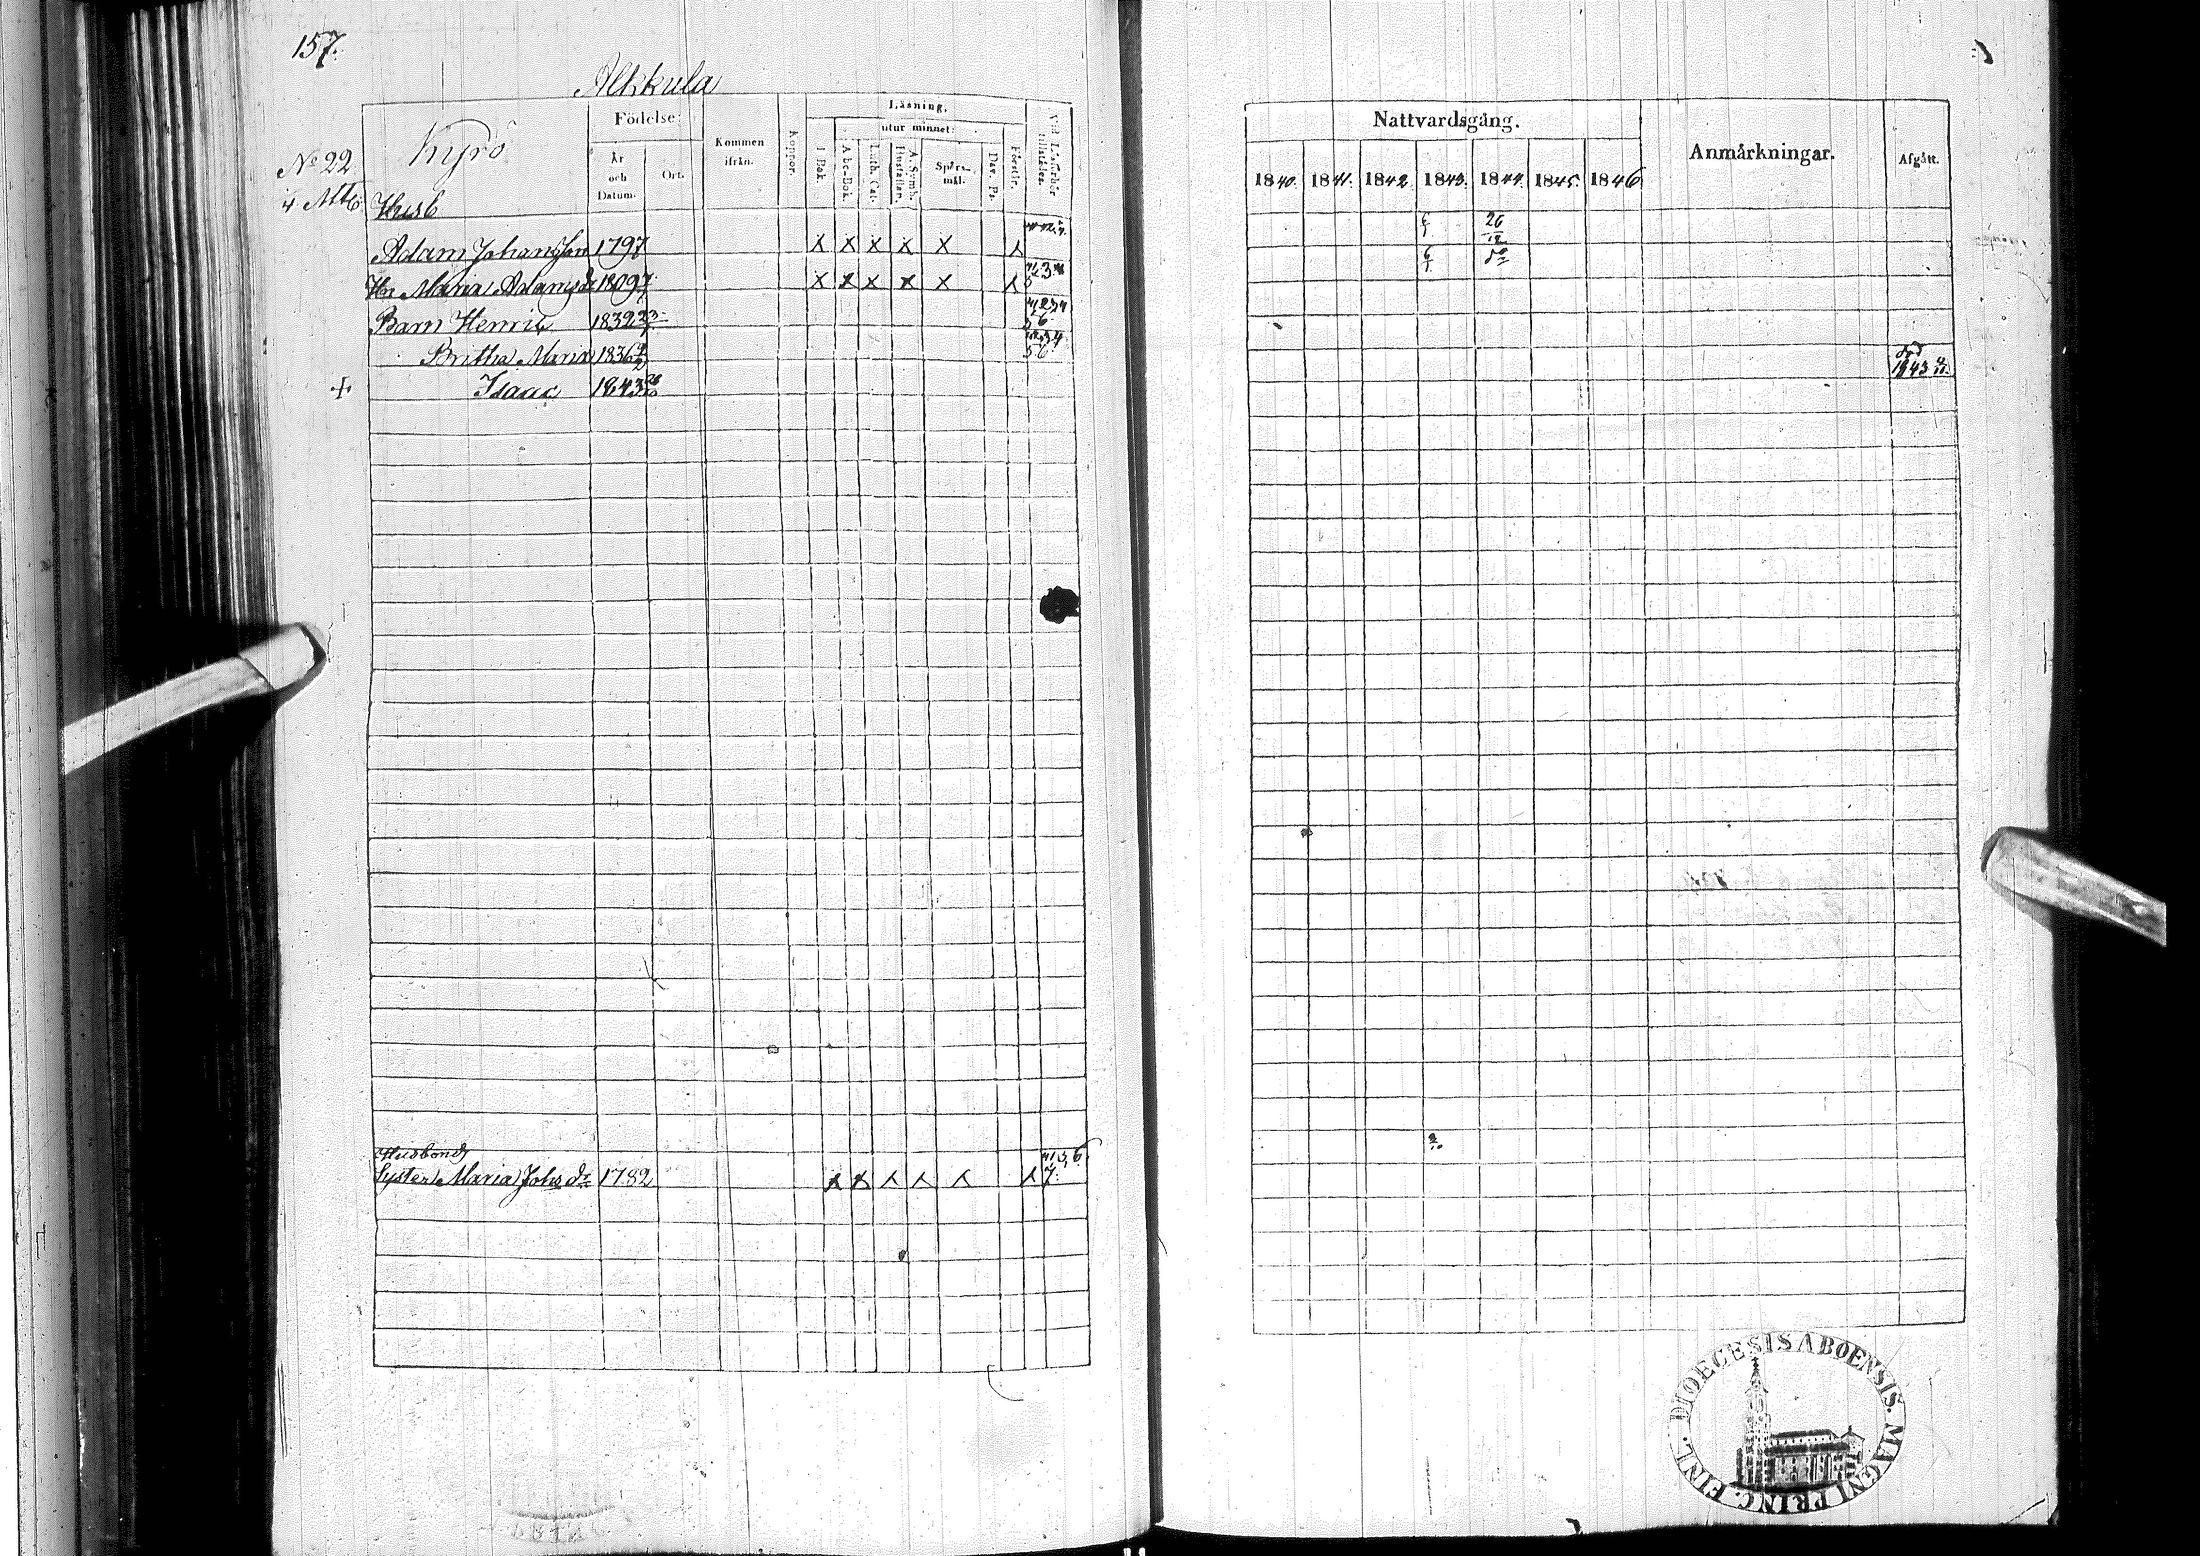 157.
Alkkula
Kyrö
Födelse:
År och Datum.
Ort.
Kommen ifrån.
Koppor.
Läsning.
utur minnet:
I Bok.
Abc-Bok.
Luth. Cat.
A. Symb. Hustaflan.
Spörsmål.
Dav. Ps.
Förstår.
Vid Läsförhör tillstädes.
Nº 22
Husb
Adam Johansson 1797 x x x x x x
Hu Maria Adamsdr 1809 x x x x x x
Barn Henric 1832
Britha Maria 1836
+ Isaac 1843
Husbonds
Syster Maria Johs dr 1782 x x x x x x
Nattvardsgång.
1840. 1841. 1842 1843. 1844. 1845. 1846
Anmärkningar.
Afgått.
6/1 26/12
6/1 do
död
1843
DIOECESIS ABOENSIS. MAGNI PRINC. FINL.